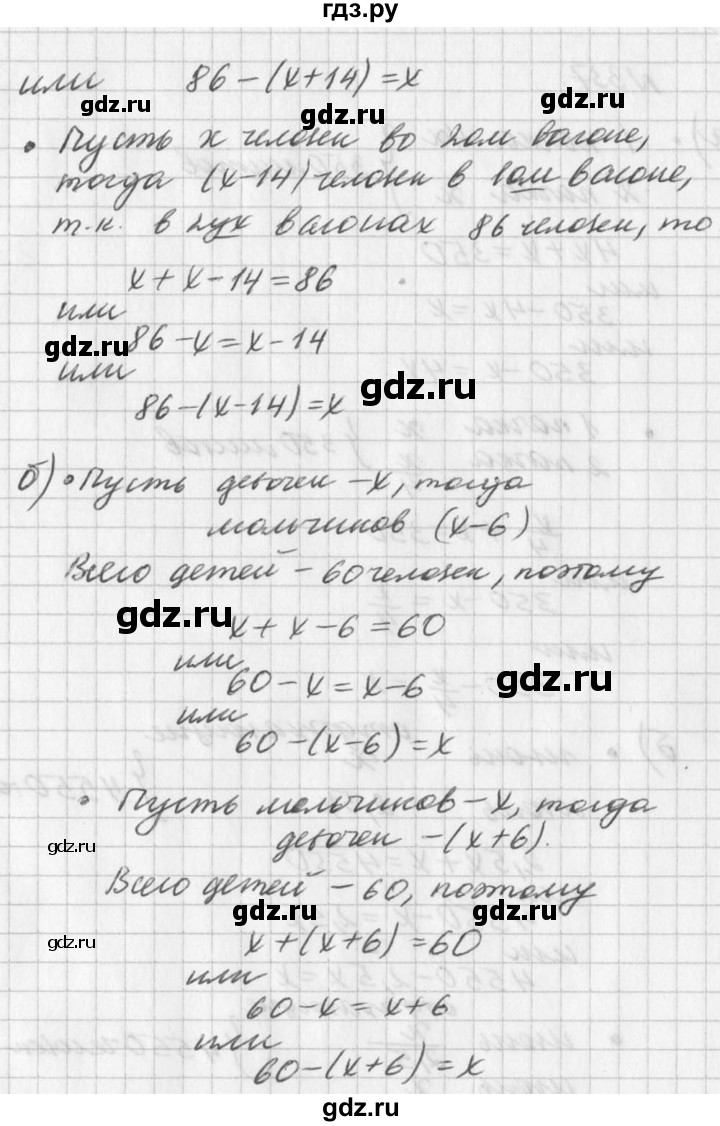 гдз.ру
или 86-(x+14)=x
gdz.ru
gdz.ru
• Пусть x человек во 2ом вагоне,
тогда (x-14) человек в 1ом вагоне,
т.к. в 2ух вагонах 86 человек, то
x+x-14=86
или
86-x=x-14
gdz.ru
или
gdz.ru
86-(x-14)=x
б) • Пусть девочек -x, тогда
мальчиков (x-6)
Всего детей - 60 человек, поэтому
gdz.ru
x+x-6=60
или
60-x=x-6
gdz.ru
или
60-(x-6)=x
• Пусть мальчиков -x, тогда
девочек -(x+6).
gdz.ru
Всего детей - 60, поэтому
gdz.ru gdz.ru
gdz.ru
x+(x+6)=60
или
60-x=x+6
или
60-(x+6)=x
gdz.ru